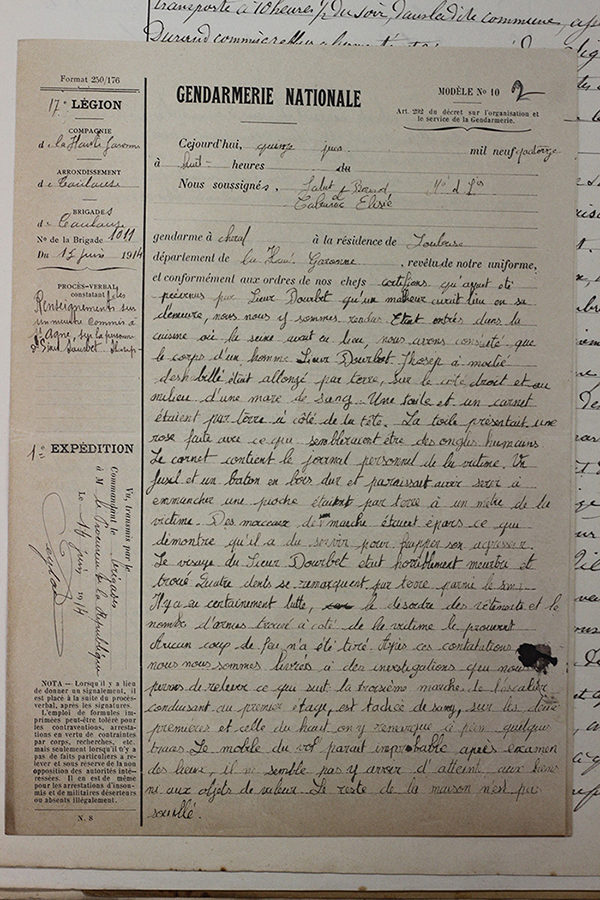 transporté à 10 heures ½ du soir, dans la dite commune,
Durand commissaire
Format 250/176
17e LÉGION
COMPAGNIE
de la Haute Garonne
ARRONDISSEMENT
de Toulouse
BRIGADES
de Toulouse
No de la Brigade 1011
Du 15 juin 1914
PROCÈS-VERBAL
constatant des
Renseignements sur
un meurtre commis à
St Agne, sur la personne
du Sieur Dourbet Jhosep
1re EXPÉDITION
Vu, transmis par le
Commandant le
à M. le Procureur de la République
Le 16 juin 1914
NOTA — Lorsqu'il y a lieu
de donner un signalement, il
est placé à la suite du procès-
verbal, après les signatures.
L'emploi de formules im-
primées peut-être toléré pour
les contraventions, arresta-
tions en vertu de contraintes
par corps, recherches, etc.
mais seulement lorsqu'il n'y a
pas de faits particuliers à re-
lever et sous réserve de la non
opposition des autorités inté-
ressées. Il en est de même
pour les arrestations d'insou-
mis et de militaires déserteurs
ou absents illégalement.
N. 8
GENDARMERIE NATIONALE
MODÈLE No 10
2
Art. 292 du décret sur l'organisation et
le service de la Gendarmerie.
Cejourd'hui, quinze juin mil neuf quatorze
à huit heures du
Nous soussignés,
gendarme à cheval à la résidence de Toulouse
département de la Haute Garonne, revêtu de notre uniforme,
et conformément aux ordres de nos chefs certifions qu'ayant été
prévenus par Sieur Dourbet qu'un malheur avait lieu en sa
demeure, nous nous y sommes rendus Etant entrés dans la
cuisine où la scène avait eu lieu, nous avons constaté que
le corps d'un homme Sieur Dourbet Jhosep à moitié
deshabillé était allongé par terre, sur le côté droit et au
milieu d'une mare de sang. Une toile et un carnet
étaient par terre à côté de la tête. La toile présentait une
rose faite avec ce que sembleraient être des ongles humains
Le carnet contient le journal personnel de la victime. Un
fusil et un baton en bois dur et paraissait avoir servi à
emmancher une pioche étaient par terre à un mètre de la
victime. Des morceaux du manche étaient épars ce qui
démontre qu'il a du servir pour frapper son agresseur.
Le visage du Sieur Dourbet etait horriblement meurtri et
troué Quatre dents se remarquent par terre parmi le sang
Il y a eu certainement lutte, le desordre des vêtements et le
nombre d'armes trouvé à coté de la victime le prouvent
Aucun coup de feu n'a été tiré. Après ces constatations
nous nous sommes livrés à des investigations qui nous
permis de relever ce qui suit la troisième marche de l'escalier
conduisant au premier étage, est taché de sang, sur les deux
premières et celle du haut on y remarque à peine quelques
traces Le mobile du vol parait improbable après examen
des lieux, il ne semble pas y avoir d'atteint aux biens
ni aux objets de valeur. Le reste de la maison n'est pas
souillé.